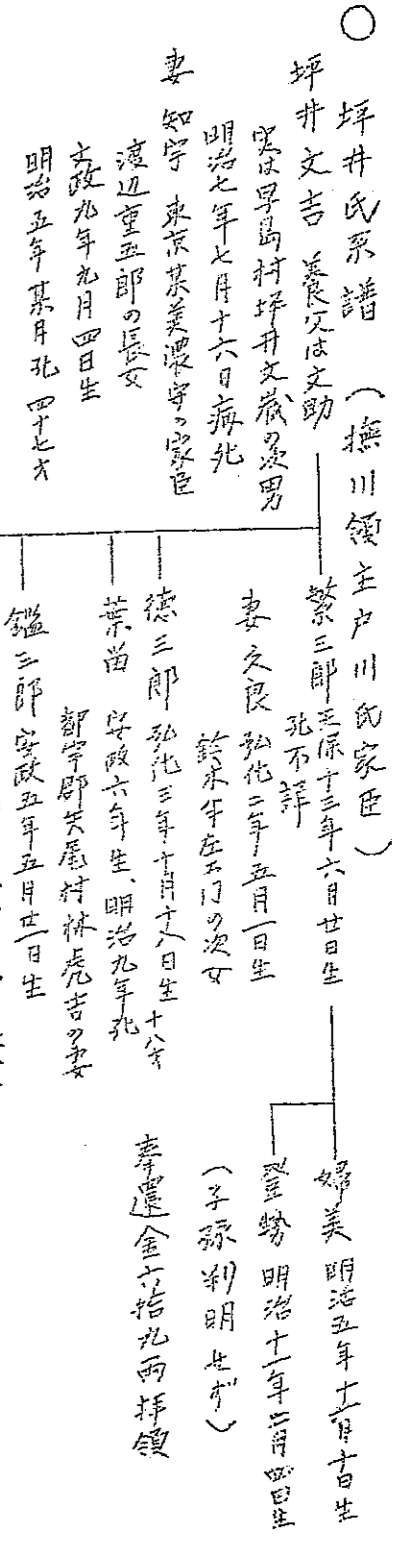 ○ 坪井氏系譜 (撫川領主戸川氏家臣)
坪井文吉 養良父は文助
実は早島村坪井文蔵の次男
明治七年七月十六日病死
妻 知宇 東京某美濃守の家臣
渡辺重五郎の長女
文政九年九月四日生
明治五年某月死 四十七才
繁三郎 天保十三年六月廿日生
死不詳
妻久良 弘化二年五月一日生
鈴木半左エ門の次女
徳三郎 弘化三年十月十八日生 十八才
葉苗 安政六年生、明治九年死
都宇郡矢尾村林虎吉の妻
鑑三郎 安政五年五月廿一日生
婦美 明治五年十一月十日生
登勢 明治十一年二月四日生
(子孫判明せず)
奉還金六拾九両拝領